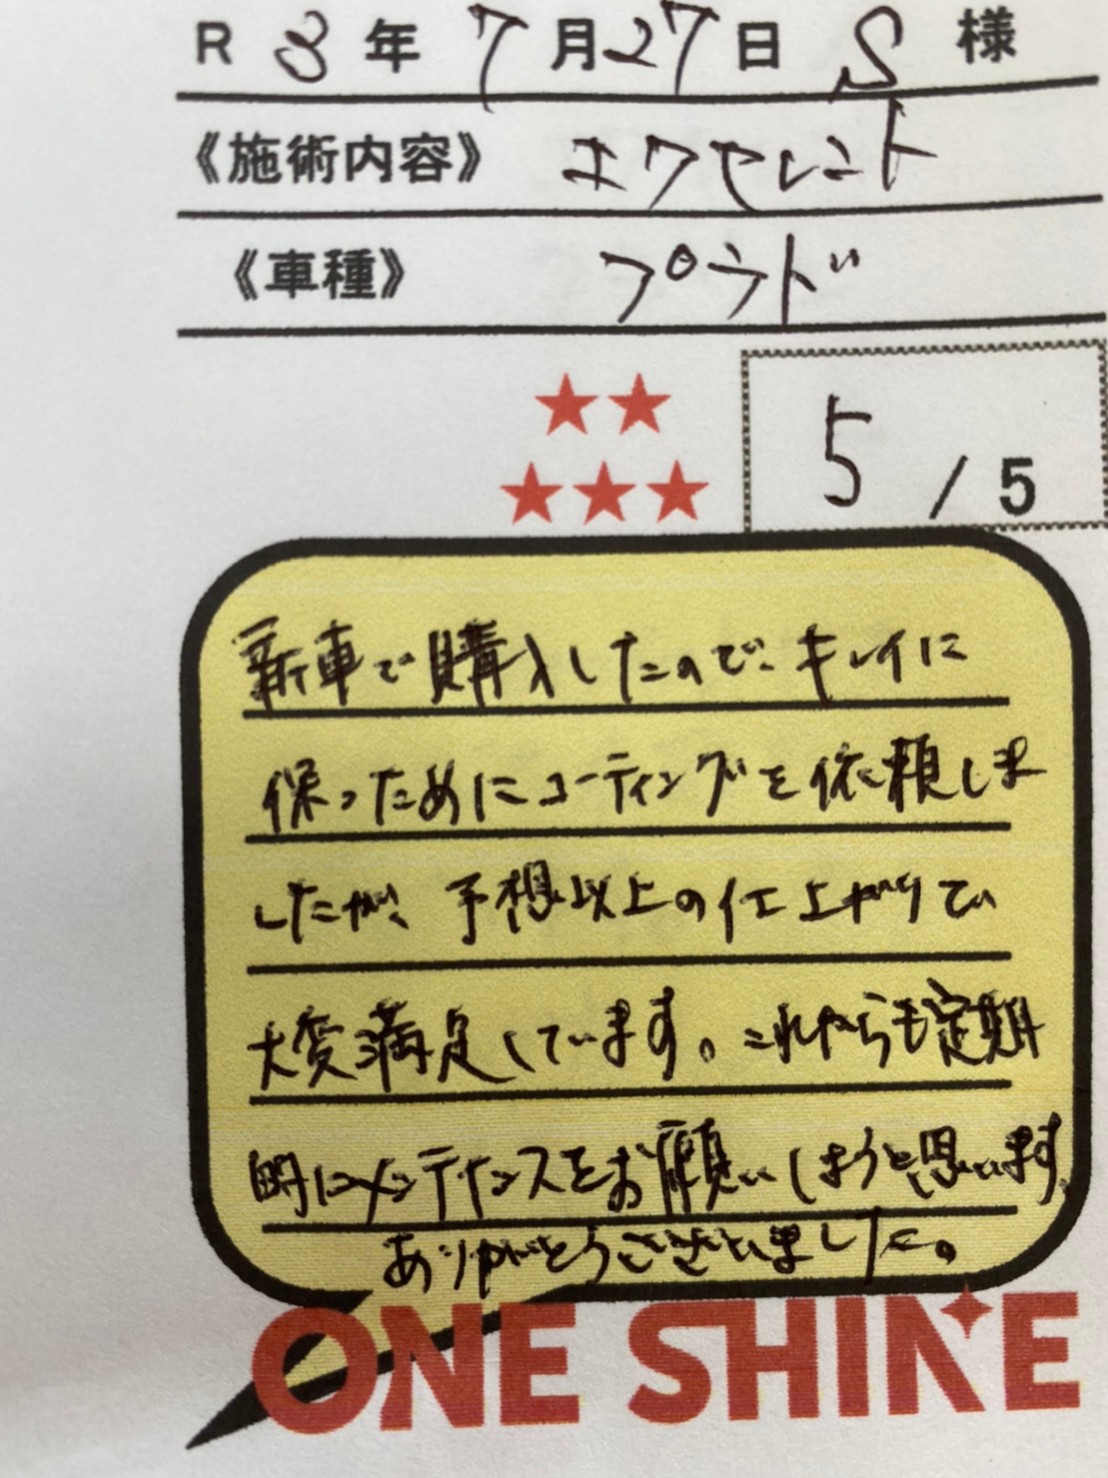 R 3年 7月27日 S 様
《施術内容》 エクセレント
《車種》 プラド
5 / 5
新車で購入したのでキレイに
保つためにコーティングを依頼しま
したが、予想以上の仕上がりで
大変満足しています。これからも定期
的にメンテナンスをお願いしようと思います。
ありがとうございました。
ONE SHINE